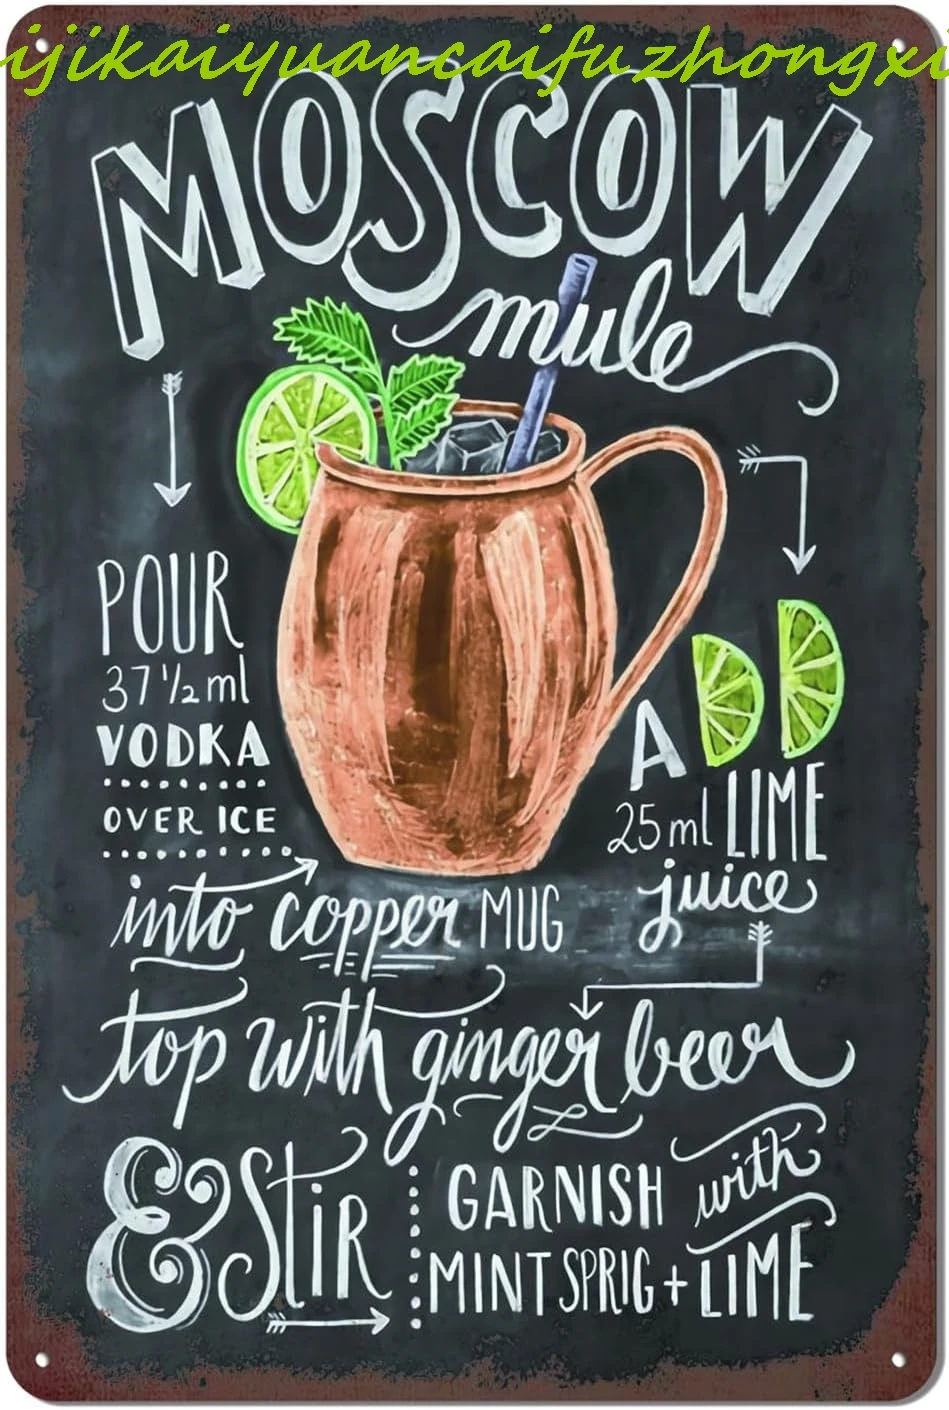 ijikaiyuancaifuzhongxi
MOSCOW
mule
POUR
37 1/2 ml
VODKA
OVER ICE
into copper MUG
ADD
25 ml LIME
juice
top with ginger beer
& StiR
GARNISH with
MINT SPRIG + LIME